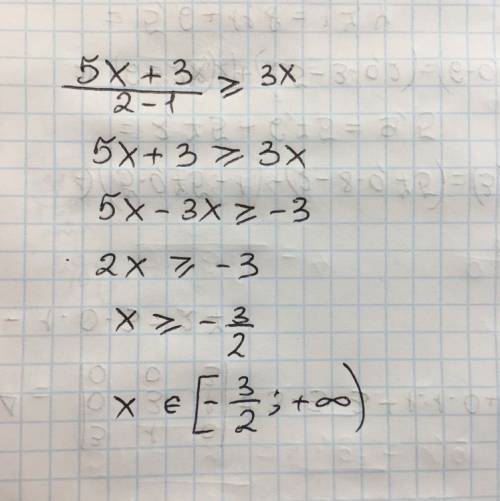 (5x + 3)/(2 - 1) ≥ 3x
5x + 3 ≥ 3x
5x - 3x ≥ -3
2x ≥ -3
x ≥ -3/2
x ∈ [-3/2; +∞)